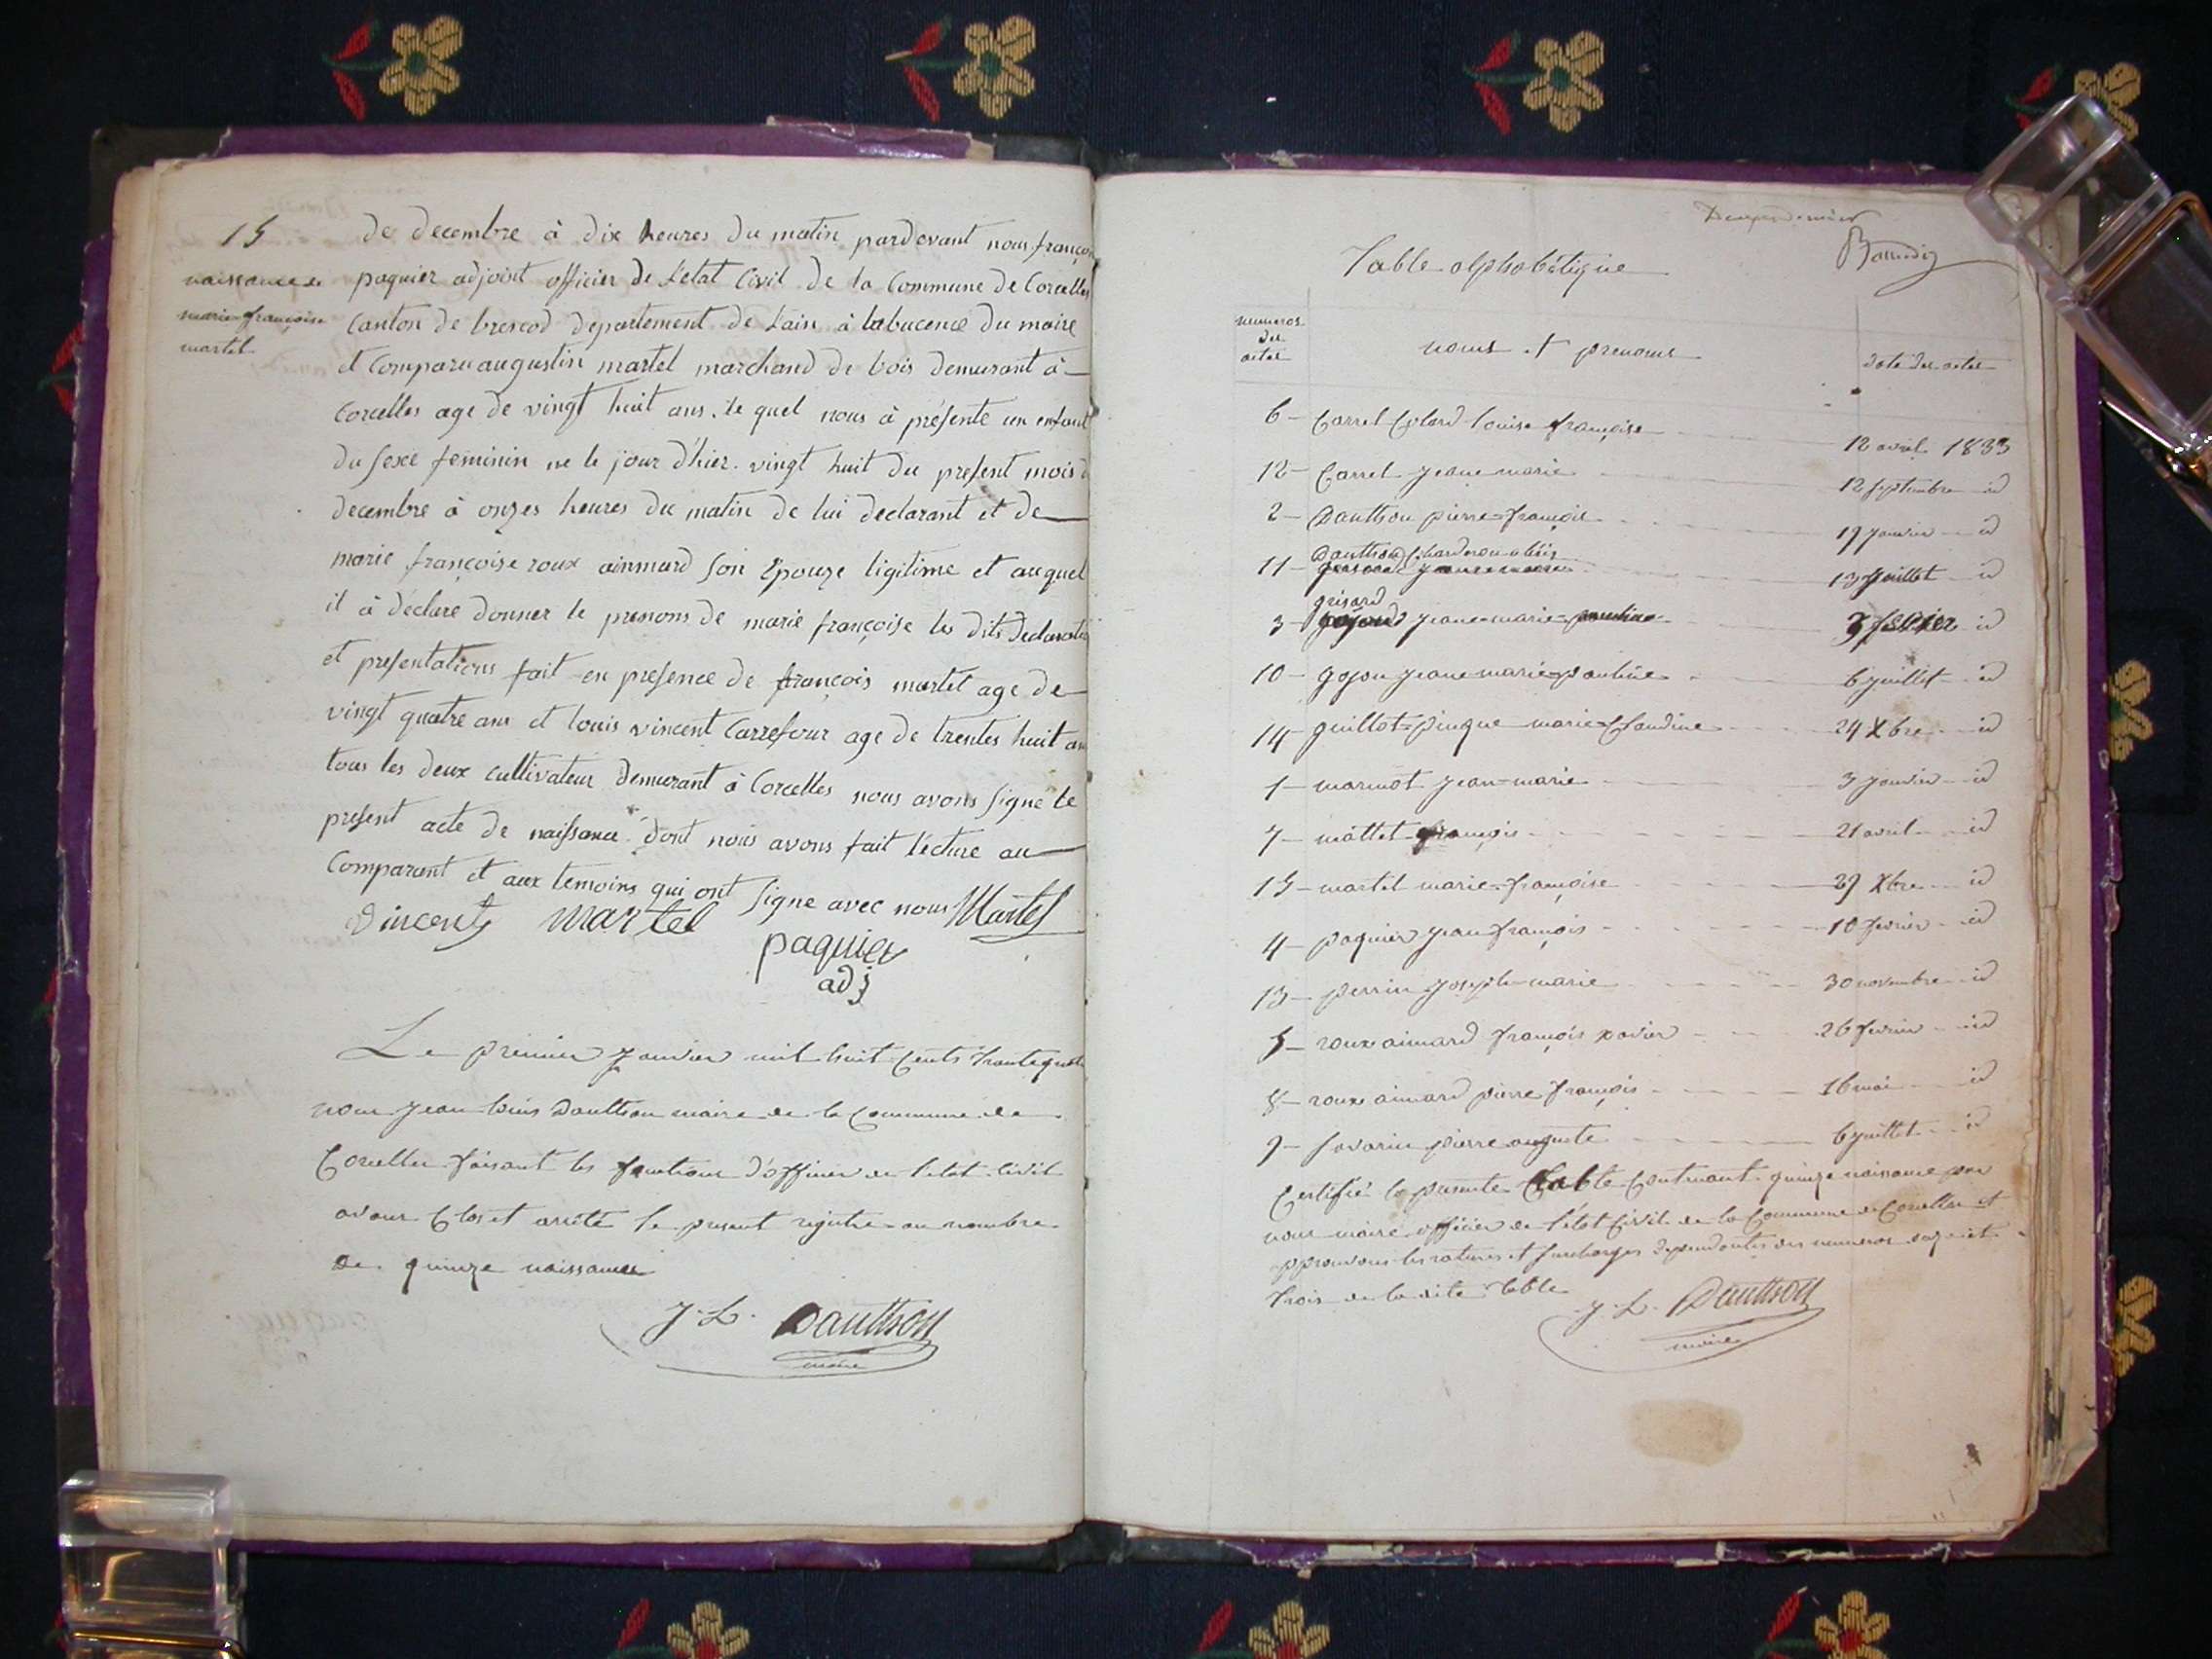 15
naissance de
marie françoise
martel
de decembre à dix heures du matin pardevant nous françois
paquier adjoint officier de L'etat Civil de la Commune de Corcelles
Canton de brenod departement de Lain à labucence du maire
et Comparu augustin martel marchand de bois demurant à
Corcelles age de vingt huit ans. le quel nous à présenté un enfant
du sexe feminin ne le jour d'hier. vingt huit du present mois de
decembre à onzes heures du matin de lui declarant et de
marie françoise roux ainmard son Epouze ligitime et auquel
il à déclare donner le prenons de marie françoise les dits declaration
et presentations fait en presence de françois martel age de
vingt quatre ans et louis vincent Carrefour age de trentes huit ans
tous les deux cultivateur demurant à Corcelles nous avons signe le
present acte de naissance. dont nous avons fait lecture au
Comparant et aux temoins qui ont signe avec nous Martel
Vincent martel
paquier
adj
Le premier janvier mil huit Cents trente quatre
nous jean louis Daultson maire de la Commune de
Corcelles faisant les fonctions d'officier de l'etat Civil
avons Clos et arrêté le present registre au nombre
de quinze naissances
J. L. Daultson
maire
Table alphabétique
numeros
des
actes
noms et prenoms
date des actes
6 — Carrel Colard louise françoise 12 avril 1833
12 — Carrel jeane marie 12 septembre id
2 — Daultson pierre françois 19 janvier id
Daultson
11 — 13 juillet id
grisard
3 — jeane marie 9 fevrier id
10 — gojon jeane marie pauline 6 juillet id
14 — guillot pinque marie Claudine 24 Xbre id
1 — marmot jean marie 3 janvier id
7 — mattet françois 21 avril id
15 — martel marie françoise 29 Xbre id
4 — paquier jean françois 10 fevrier id
13 — perrin joseph marie 30 novembre id
5 — roux aimard françois xavier 26 fevrier id
8 — roux aimard pierre françois 16 mai id
9 — savarin pierre auguste 6 juillet id
Certifié la presente table Contenant quinze naissance par
nous maire officier de l'état Civil de la Commune de Corcelles et
approuvons les ratures et surcharges dependantes des numeros onze et
trois de la dite table
J. L. Daultson
maire